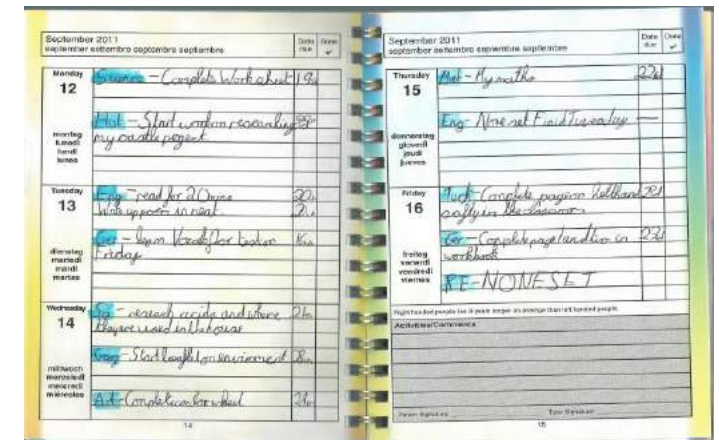 September 2011
september settembre septembre septiembre
Date due
Done
✓
Monday
12
montag
lunedi
lundi
lunes
Science - Complete Worksheet 19th
Hist - Start work on researching
my castle
Tuesday
13
dienstag
martedi
mardi
martes
Eng - read for 20 mins
Write up poem in neat.
Ger - learn Vocab for test on
Friday
Wednesday
14
mittwoch
mercoledi
mercredi
miércoles
Sci - research acids and where
they are used in the house
Geog - Start on enviroment
Art - Complete colour wheel
14
September 2011
september settembre septembre septiembre
Date due
Done
✓
Thursday
15
donnerstag
giovedi
jeudi
jueves
Mat - Mymaths 22nd
Eng - None set Finish Tuesday —
Friday
16
freitag
venerdi
vendredi
viernes
Tech - Complete page on Health and
safty in the classroom
Ger - Complete page 1 and 2 on
workbook
RE - NONE SET
Right handed people live 9 years longer on average than left handed people.
Activities/Comments
Parent Signature
Tutor Signature
15